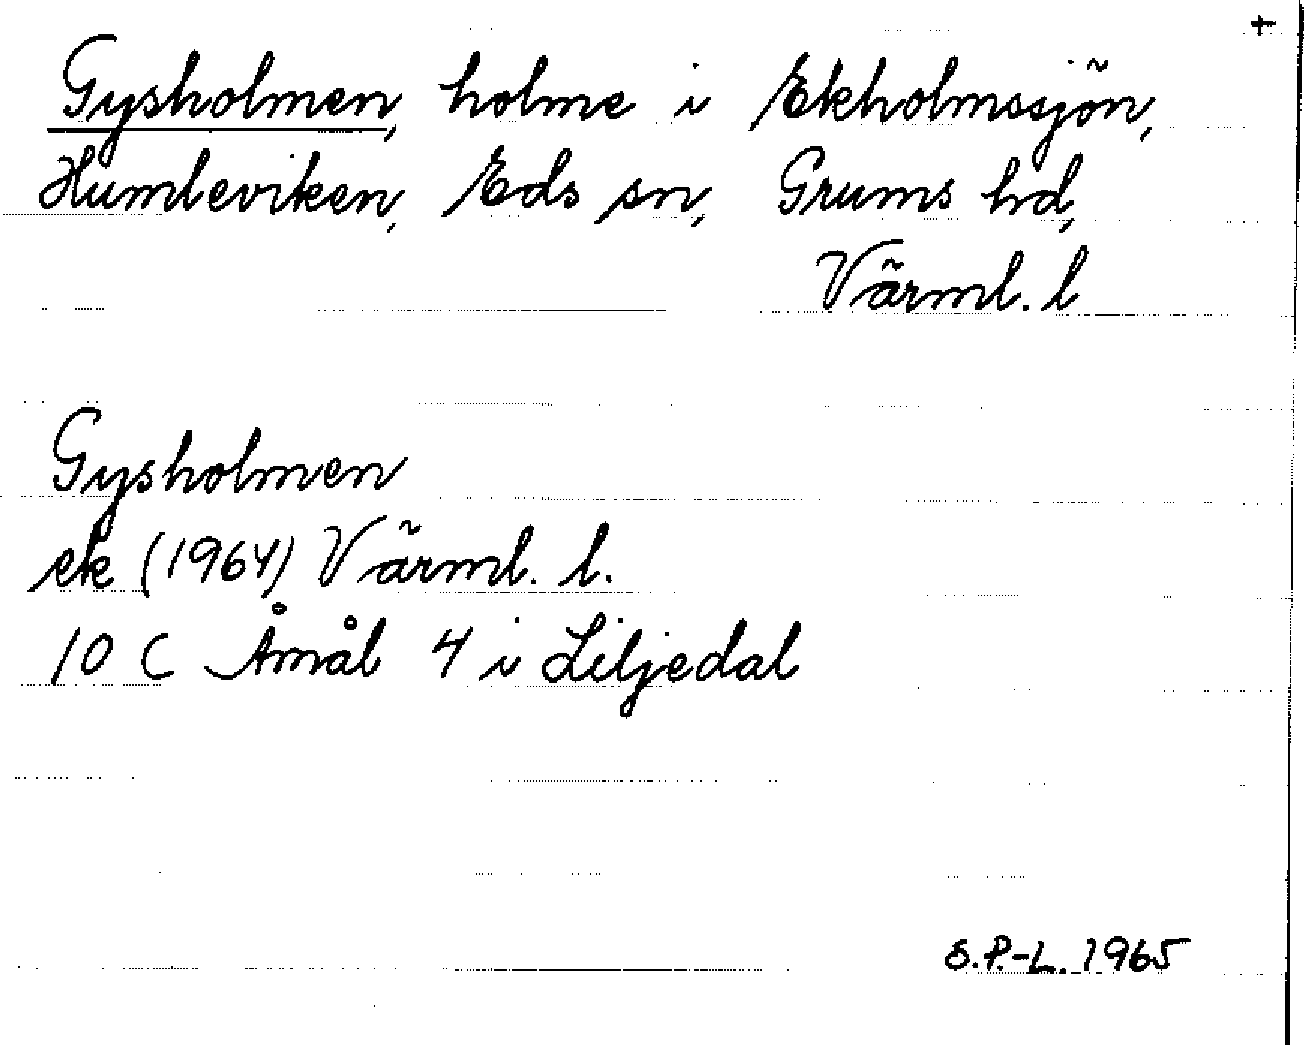 +
Gysholmen, holme i Ekholmssjön,
Humleviken, Eds sn, Grums hd,
Värml. l
Gysholmen
ek (1964) Värml. l.
10 C Åmål 4 i Liljedal
S.P.-L. 1965